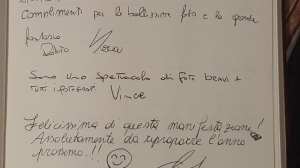 Complimenti per le bellissime foto e la grande
fantasia
Sono uno spettacolo di foto bravi a
tutti i fotografi Vince
Felicissima di questa manifestazione!
Assolutamente da riproporre l'anno
prossimo!!